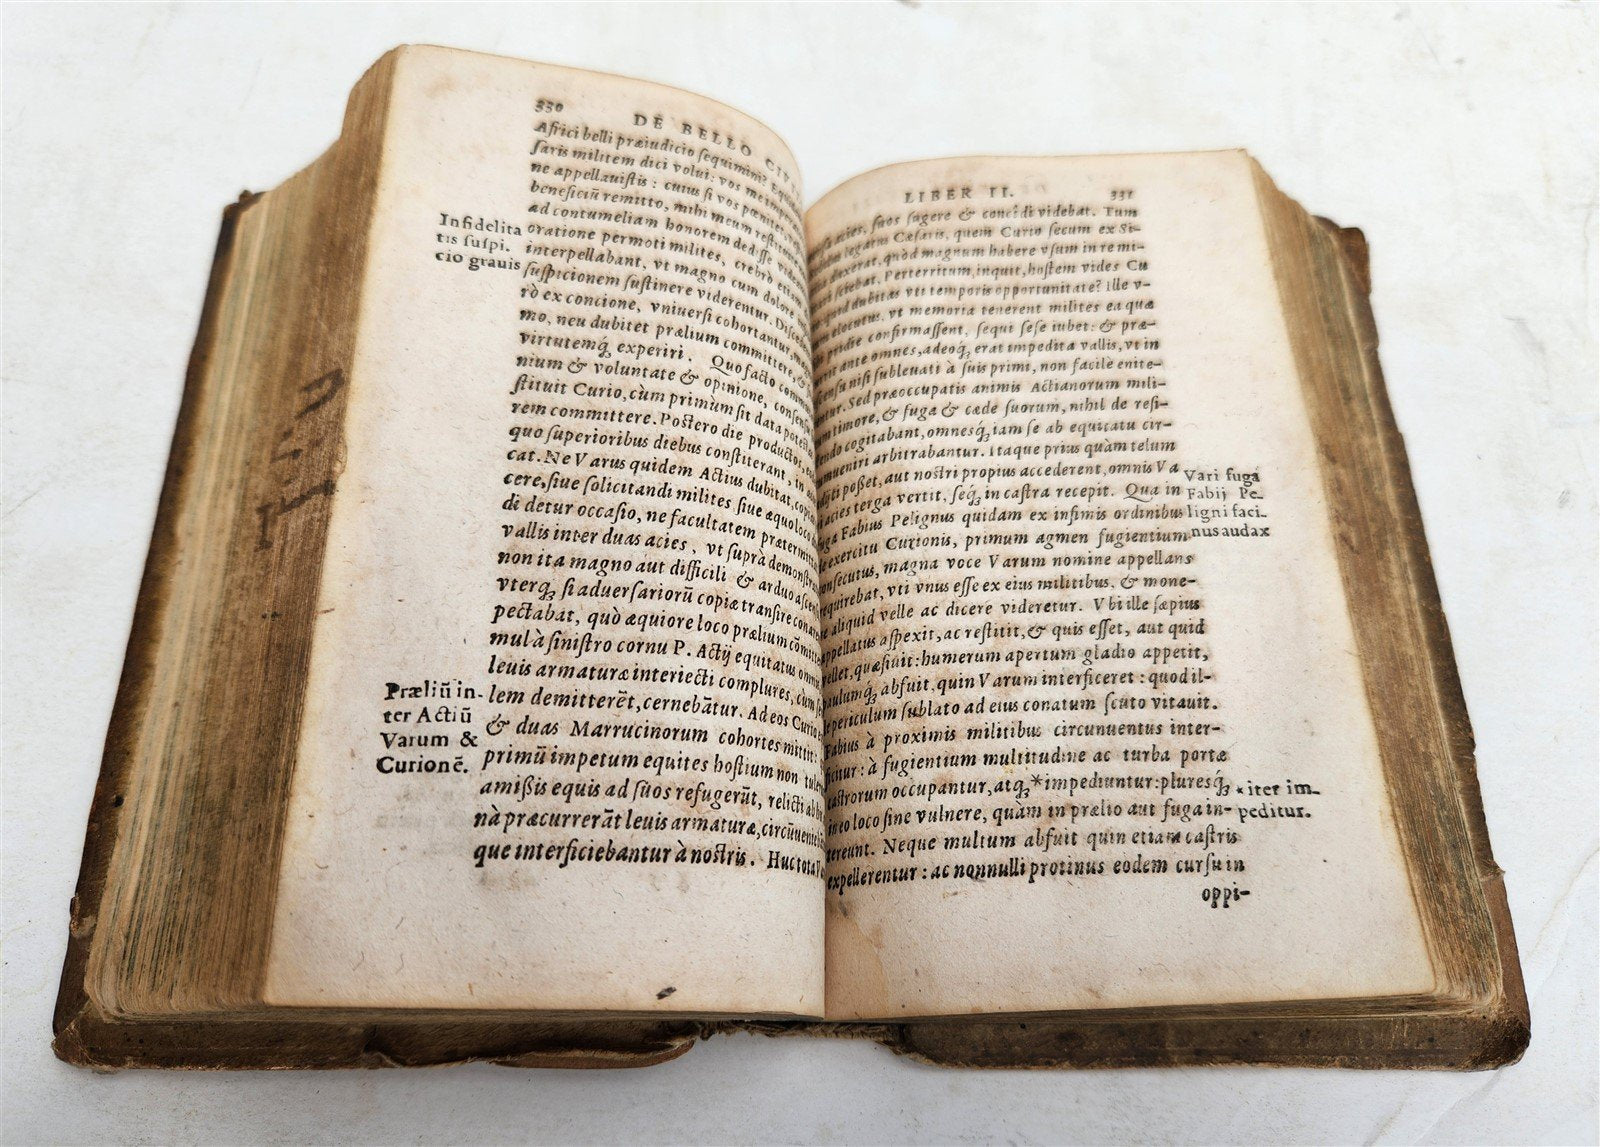 330
DE BELLO CIV
Africi belli præiudicio sequimini? Equid
saris militem dici volui: vos me imperat
ne appellauistis: cuius si vos pœnitet, v
beneficiũ remitto, mihi meum restit
ad contumeliam honorem dedisse vide
oratione permoti milites, crebrò etiam
interpellabant, vt magno cum dolore
suspicionem sustinere viderentur. Disced
rò ex concione, vniuersi cohortantur, mag
mo, neu dubitet prælium committere, &
virtutemq́; experiri. Quo facto comm
nium & voluntate & opinione, consensu
stituit Curio, cùm primùm sit data potest
rem committere. Postero die productos, eo
quo superioribus diebus constiterant, in a
cat. Ne Varus quidem Actius dubitat, copi
cere, siue solicitandi milites siue æquo loco
di detur occasio, ne facultatem prætermit
vallis inter duas acies, vt suprà demonstr
non ita magno aut difficili & arduo ascen
vterq́; si aduersariorũ copiæ transire conar
pectabat, quò æquiore loco prælium cõmitt
mul à sinistro cornu P. Actij equitatus omni
leuis armaturæ interiecti complures, cùm se
lem demitterẽt, cernebãtur. Ad eos Curio
& duas Marrucinorum cohortes mittit:
primũ impetum equites hostium non tule
amißis equis ad suos refugerũt, relicti ab
nà præcurrerãt leuis armaturæ, circũuente
que interficiebantur à nostris. Huc tota V
Infidelita
tis suspi.
cio grauis
Præliũ in-
ter Actiũ
Varum &
Curionẽ.
LIBER II.
331
acies, suos fugere & concidi videbat. Tum
legatus Cæsaris, quem Curio secum ex Si-
duxerat, quòd magnum habere vsum in re mi-
sciebat. Perterritum, inquit, hostem vides Cu
quid dubitas vti temporis opportunitate? Ille v-
elocutus, vt memoria tenerent milites ea quæ
pridie confirmassent, sequi sese iubet: & præ-
ante omnes, adeoq́; erat impedita vallis, vt in
nisi subleuati à suis primi, non facilè enite-
tur. Sed præoccupatis animis Actianorum mili-
timore, & fuga & cæde suorum, nihil de resi-
cogitabant, omnesq́; iam se ab equitatu cir-
mueniri arbitrabantur. Itaque prius quàm telum
poßet, aut nostri propius accederent, omnis Va
acies terga vertit, seq́; in castra recepit. Qua in
ga Fabius Pelignus quidam ex infimis ordinibus
exercitu Curionis, primum agmen fugientium
nsecutus, magna voce Varum nomine appellans
equirebat, vti vnus esse ex eius militibus, & mone-
aliquid velle ac dicere videretur. Vbi ille sæpius
appellatus aspexit, ac restitit, & quis esset, aut quid
vellet, quæsiuit: humerum apertum gladio appetit,
paulumq́; abfuit, quin Varum interficeret: quod il-
le periculum sublato ad eius conatum scuto vitauit.
Fabius à proximis militibus circunuentus inter-
ficitur: à fugientium multitudine ac turba portæ
castrorum occupantur, atq́; *impediuntur: pluresq́;
in eo loco sine vulnere, quàm in prælio aut fuga in-
tereunt. Neque multum abfuit quin etiam castris
expellerentur: ac nonnulli protinus eodem cursu in
oppi-
Vari fuga
Fabij Pe-
ligni faci-
nus audax
* iter im-
peditur.